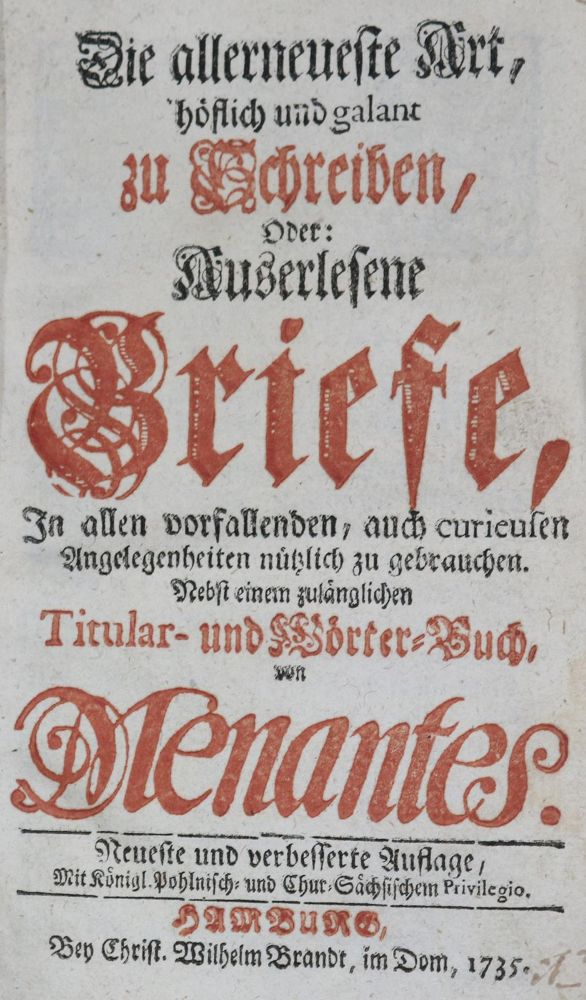 Die allerneueste Art,
höflich und galant
zu Schreiben,
Oder:
Auserlesene
Briefe,
In allen vorfallenden, auch curieusen
Angelegenheiten nützlich zu gebrauchen.
Nebst einem zulänglichen
Titular- und Wörter-Buch,
von
Menantes.
Neueste und verbesserte Auflage,
Mit Königl. Pohlnisch- und Chur-Sächsischem Privilegio.
HAMBURG,
Bey Christ. Wilhelm Brandt, im Dom, 1735.